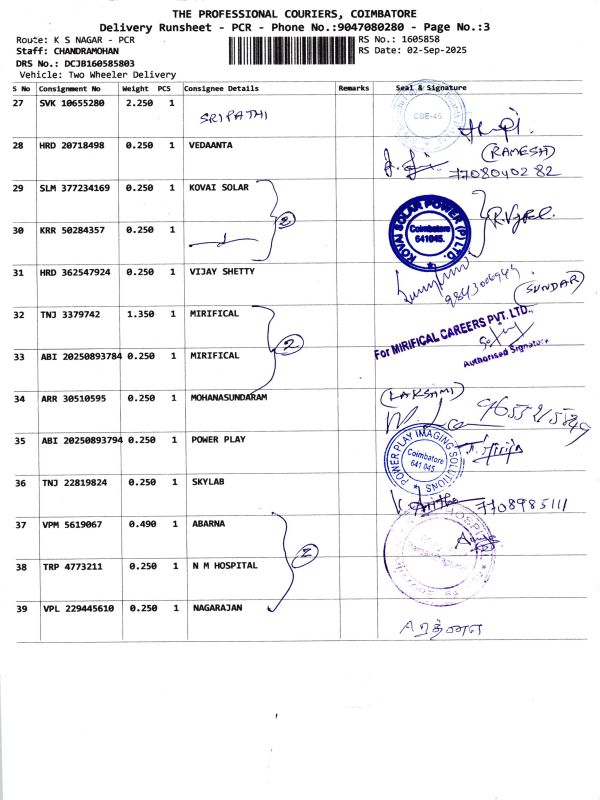 THE PROFESSIONAL COURIERS, COIMBATORE
Delivery Runsheet - PCR - Phone No.:9047080280 - Page No.:3
Route: K S NAGAR - PCR
RS No.: 1605858
Staff: CHANDRAMOHAN
RS Date: 02-Sep-2025
DRS No.: DCJB160585803
Vehicle: Two Wheeler Delivery
S No Consignment No Weight PCS Consignee Details Remarks Seal & Signature
27 SVK 10655280 2.250 1 SRIPATHI
CBE-45
28 HRD 20718498 0.250 1 VEDAANTA
(RAMESH)
7708040282
29 SLM 377234169 0.250 1 KOVAI SOLAR
KOVAI SOLAR POWER (P) LTD.
Coimbatore
641045.
30 KRR 50284357 0.250 1
31 HRD 362547924 0.250 1 VIJAY SHETTY
(SUNDAR)
32 TNJ 3379742 1.350 1 MIRIFICAL
2
For MIRIFICAL CAREERS PVT. LTD.,
Authorised Signatory
33 ABI 20250893784 0.250 1 MIRIFICAL
34 ARR 30510595 0.250 1 MOHANASUNDARAM
(LAKSHMI)
35 ABI 20250893794 0.250 1 POWER PLAY
POWER PLAY IMAGING SOLUTIONS
Coimbatore
641 045
36 TNJ 22819824 0.250 1 SKYLAB
7708985111
37 VPM 5619067 0.490 1 ABARNA
38 TRP 4773211 0.250 1 N M HOSPITAL
39 VPL 229445610 0.250 1 NAGARAJAN